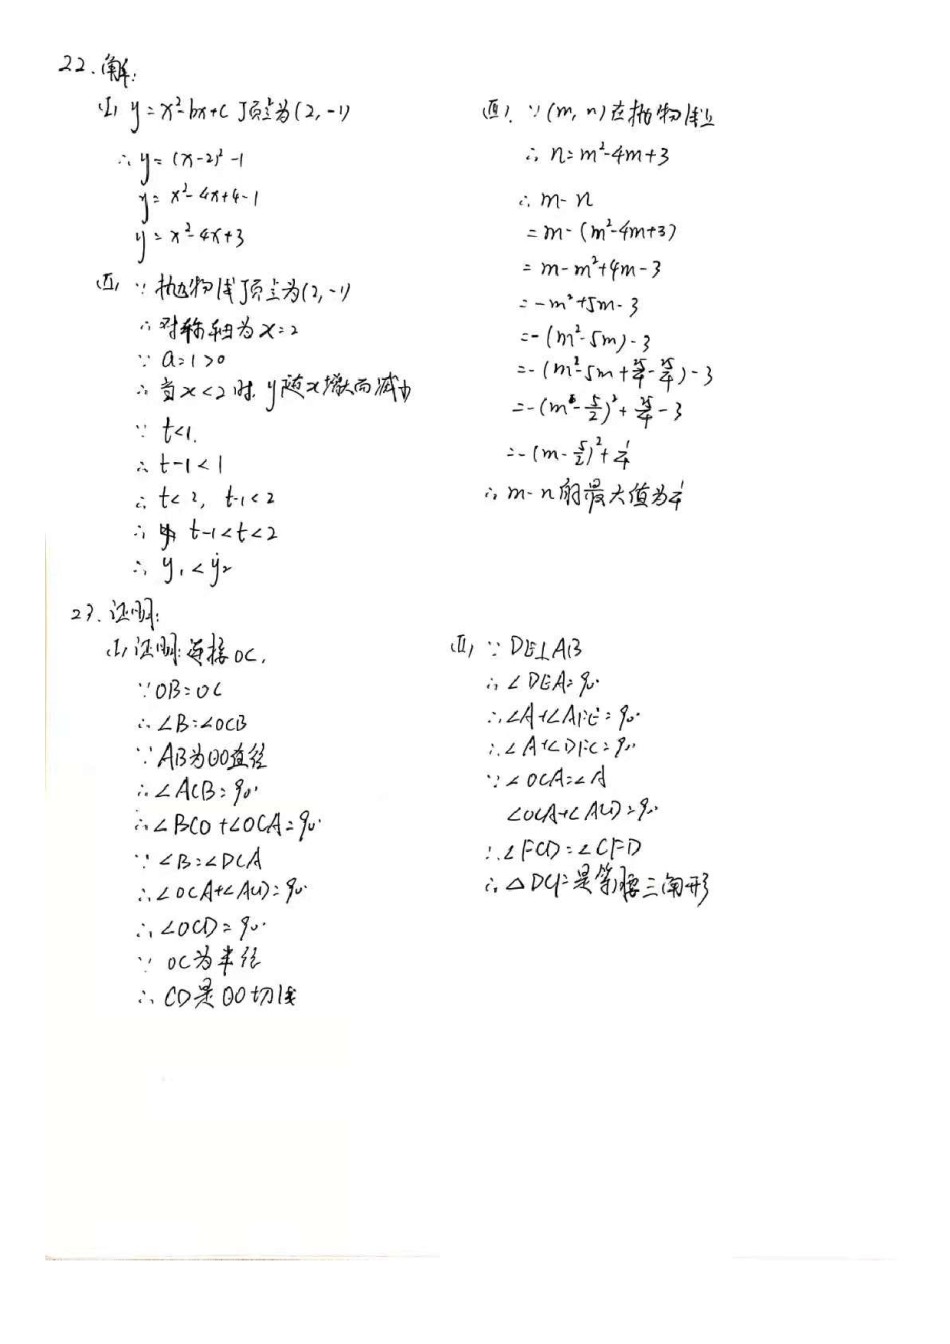 22.解:
(I) y=x²-bx+c顶点为(2,-1)
∴y=(x-2)²-1
y=x²-4x+4-1
y=x²-4x+3
(II) ∵抛物线顶点为(2,-1)
∴对称轴为x=2
∵a=1>0
∴当x<2时,y随x增大而减小
∵t<1.
∴t-1<1
∴t<2, t-1<2
∴ t-1<t<2
∴y₁<y₂
(III) ∵(m,n)在抛物线上
∴n=m²-4m+3
∴m-n
=m-(m²-4m+3)
=m-m²+4m-3
=-m²+5m-3
=-(m²-5m)-3
=-(m²-5m+25/4-25/4)-3
=-(m-5/2)²+25/4-3
=-(m-5/2)²+1/4
∴m-n的最大值为1/4
23.证明:
(I)证明:连接OC,
∵OB=OC
∴∠B=∠OCB
∵AB为⊙O直径
∴∠ACB=90°
∴∠BCO+∠OCA=90°
∵∠B=∠DCA
∴∠OCA+∠ACD=90°
∴∠OCD=90°
∵OC为半径
∴CD是⊙O切线
(II) ∵DE⊥AB
∴∠DEA=90°
∴∠A+∠AFE=90°
∴∠A+∠DFC=90°
∵∠OCA=∠A
∠OCA+∠ACD=90°
∴∠FCD=∠CFD
∴△DCF是等腰三角形